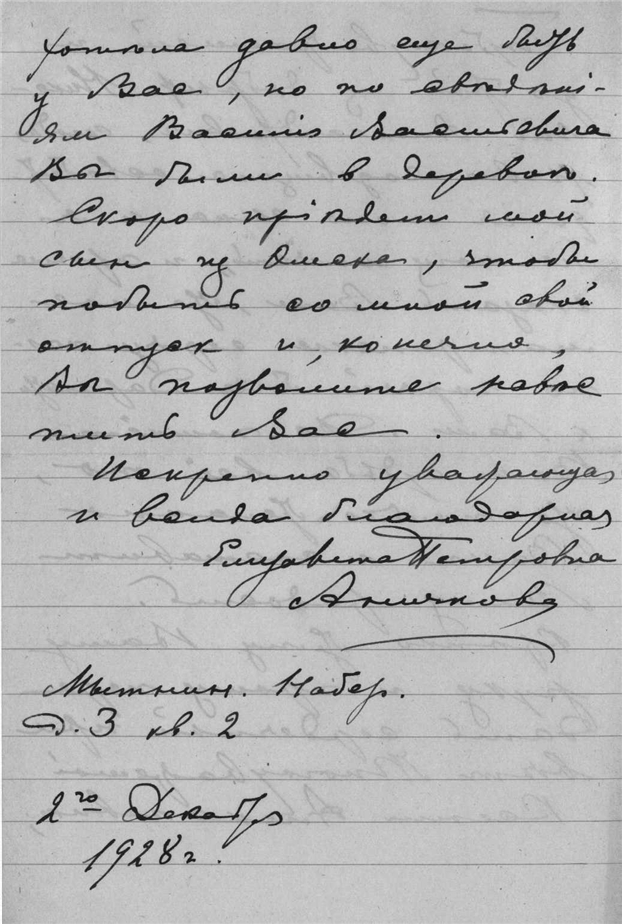 хотѣла давно еще быть
у Вас, но по свѣдѣні-
ям Василія Васильевича
Вы были в деревнѣ.
Скоро пріѣдет мой
сын из Омска, чтобы
побыть со мной свой
отпуск и, конечно,
Вы позволите навѣс
тить Вас.
Искренно уважающая
и всегда благодарная
Елизавета Петровна
Аничкова
Мытнин. Набер.
д. 3 кв. 2
2го Декабря
1928 г.